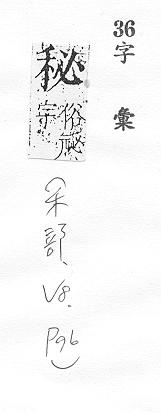 36字彙
秘
俗祕
字
(禾部、V8、P96)